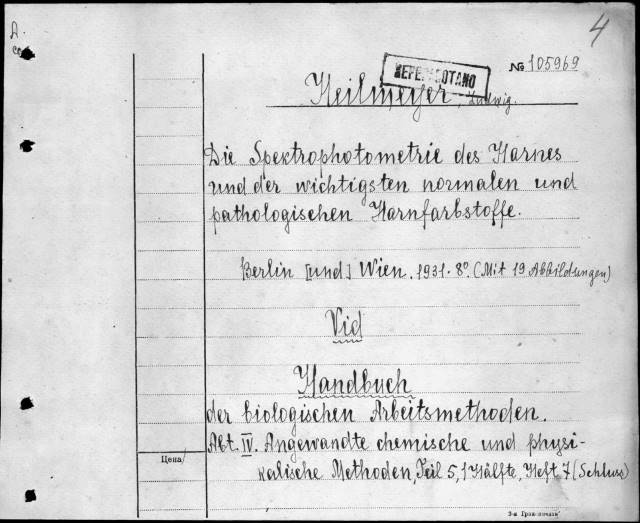 A.
4
№ 105969
ПЕРЕРАБОТАНО
Heilmeyer, Ludwig.
Die Spektrophotometrie des Harnes
und der wichtigsten normalen und
pathologischen Harnfarbstoffe.
Berlin [und] Wien. 1931. 8º. (Mit 19 Abbildungen)
Vid
Handbuch
der biologischen Arbeitsmethoden.
Abt. IV. Angewandte chemische und physi-
kalische Methoden, Teil 5, 1 Hälfte, Heft 7 (Schluss)
Цена